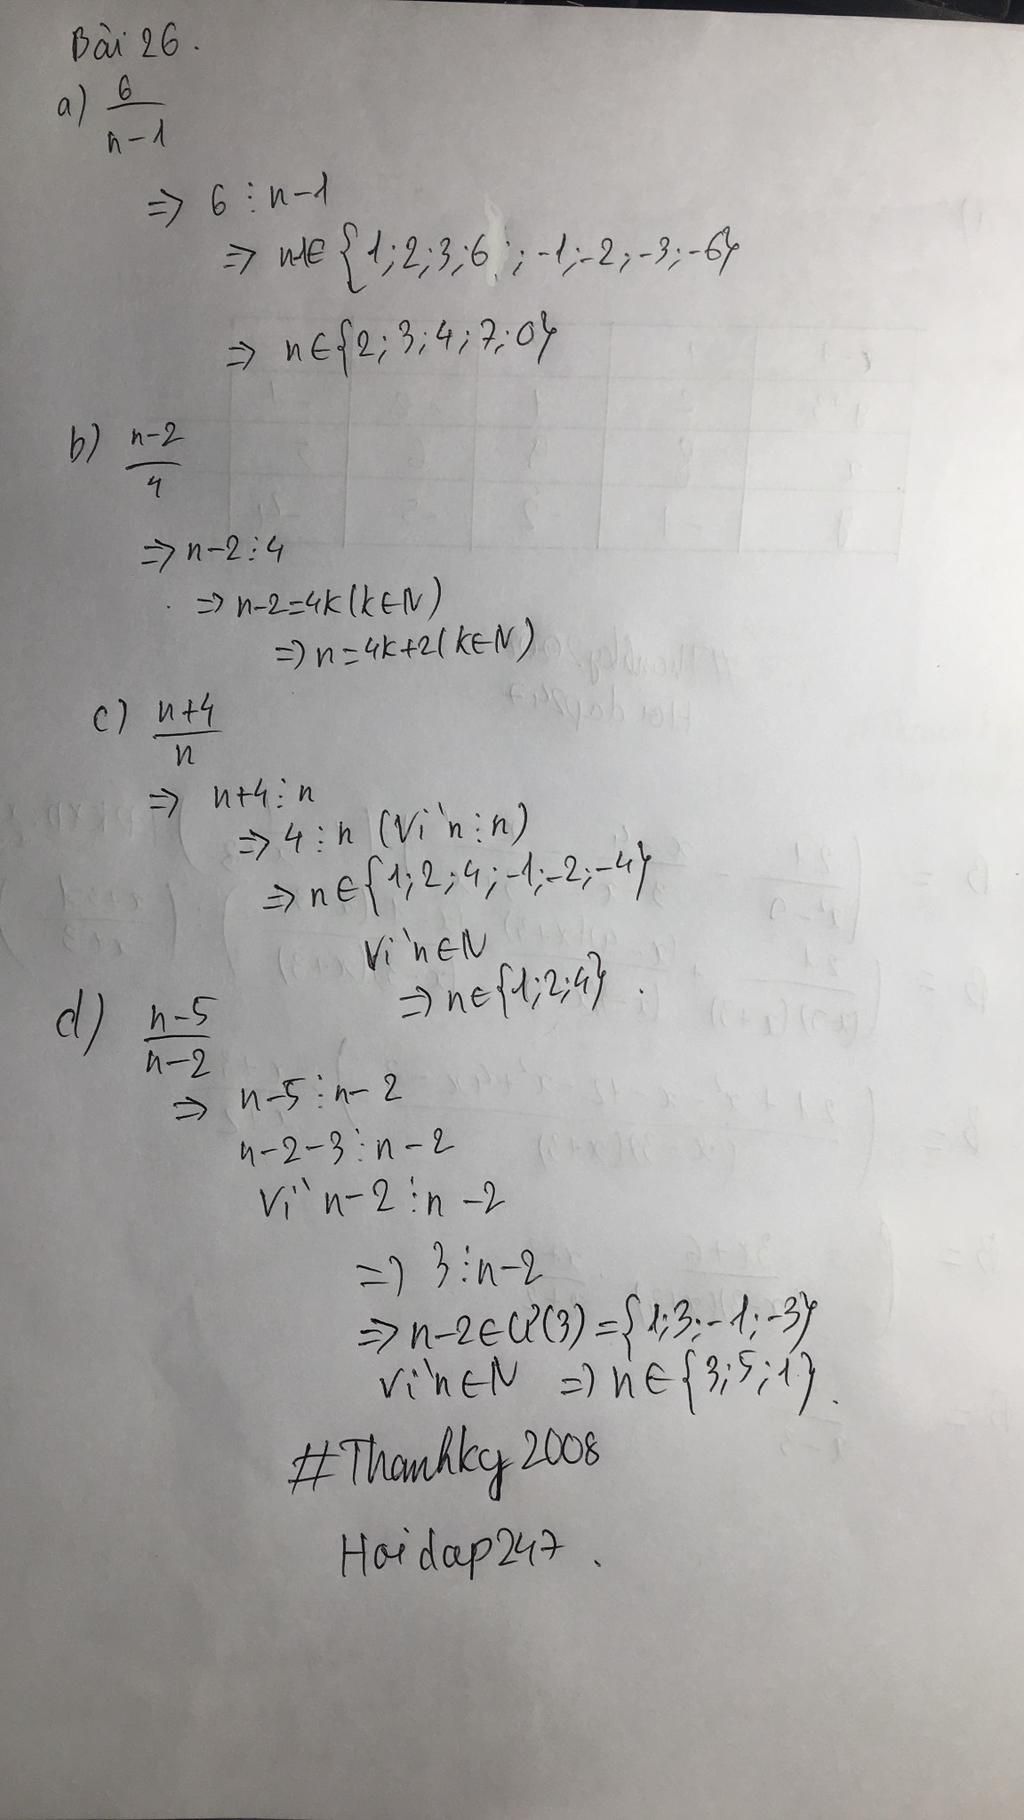 Bài 26.
a) 6/(n-1)
=> 6 ⋮ n-1
=> n-1∈ {1;2;3;6;-1;-2;-3;-6}
=> n∈{2;3;4;7;0}
b) (n-2)/4
=> n-2⋮4
=> n-2=4k(k∈N)
=> n=4k+2(k∈N)
c) (n+4)/n
=> n+4⋮n
=> 4⋮n (Vì n⋮n)
=> n∈{1;2;4;-1;-2;-4}
Vì n∈N
=> n∈{1;2;4}.
d) (n-5)/(n-2)
=> n-5⋮n-2
n-2-3⋮n-2
Vì n-2⋮n-2
=> 3⋮n-2
=> n-2∈Ư(3)={1;3;-1;-3}
Vì n∈N => n∈{3;5;1}.
#Thanhky2008
Hoidap247.